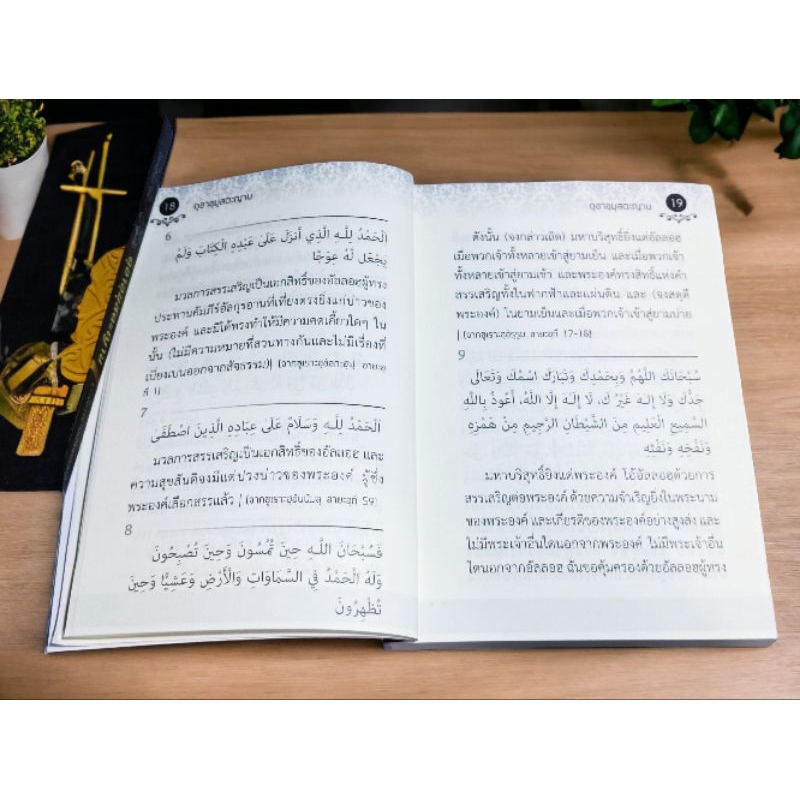 18 ดุอาอฺมุสตะญาบ
6
الْحَمْدُ لِلَّـهِ الَّذِي أَنزَلَ عَلَىٰ عَبْدِهِ الْكِتَابَ وَلَمْ
يَجْعَل لَّهُ عِوَجًا
มวลการสรรเสริญเป็นเอกสิทธิ์ของอัลลอฮผู้ทรง
ประทานคัมภีร์อัลกุรอานที่เที่ยงตรงยิ่งแก่บ่าวของ
พระองค์ และมิได้ทรงทำให้มีความคดเคี้ยวใดๆ ใน
นั้น (ไม่มีความหมายที่สวนทางกันและไม่มีเรื่องที่
เบี่ยงเบนออกจากสัจธรรม)| (จากซูเราะฮฺอัลกะฮฺฟิ อายะฮฺ
ที่ 1)
7
الْحَمْدُ لِلَّـهِ وَسَلَامٌ عَلَىٰ عِبَادِهِ الَّذِينَ اصْطَفَىٰ
มวลการสรรเสริญเป็นเอกสิทธิ์ของอัลลอฮ และ
ความสุขสันติจงมีแด่ปวงบ่าวของพระองค์ ผู้ซึ่ง
พระองค์เลือกสรรแล้ว | (จากซูเราะฮฺอันนัมลฺ อายะฮฺที่ 59)
8
فَسُبْحَانَ اللَّـهِ حِينَ تُمْسُونَ وَحِينَ تُصْبِحُونَ
وَلَهُ الْحَمْدُ فِي السَّمَاوَاتِ وَالْأَرْضِ وَعَشِيًّا وَحِينَ
تُظْهِرُونَ
ดุอาอฺมุสตะญาบ 19
ดังนั้น (จงกล่าวเถิด) มหาบริสุทธิ์ยิ่งแด่อัลลอฮ
เมื่อพวกเจ้าทั้งหลายเข้าสู่ยามเย็น และเมื่อพวกเจ้า
ทั้งหลายเข้าสู่ยามเช้า และพระองค์ทรงสิทธิ์แห่งคำ
สรรเสริญทั้งในฟากฟ้าและแผ่นดิน และ (จงสดุดี
พระองค์) ในยามเย็นและเมื่อพวกเจ้าเข้าสู่ยามบ่าย
| (จากซูเราะฮฺอัรรูม อายะฮฺที่ 17-18)
9
سُبْحَانَكَ اللَّهُمَّ وَبِحَمْدِكَ وَتَبَارَكَ اسْمُكَ وَتَعَالَى
جَدُّكَ وَلَا إِلَـهَ غَيْرُكَ، لَا إِلَـهَ إِلَّا اللَّهُ، أَعُوذُ بِاللَّهِ
السَّمِيعِ الْعَلِيمِ مِنَ الشَّيْطَانِ الرَّجِيمِ مِنْ هَمْزِهِ
وَنَفْخِهِ وَنَفْثِهِ
มหาบริสุทธิ์ยิ่งแด่พระองค์ โอ้อัลลอฮด้วยการ
สรรเสริญต่อพระองค์ ด้วยความจำเริญยิ่งในพระนาม
ของพระองค์ และเกียรติของพระองค์อย่างสูงส่ง และ
ไม่มีพระเจ้าอื่นใดนอกจากพระองค์ ไม่มีพระเจ้าอื่น
ใดนอกจากอัลลอฮ ฉันขอคุ้มครองด้วยอัลลอฮผู้ทรง